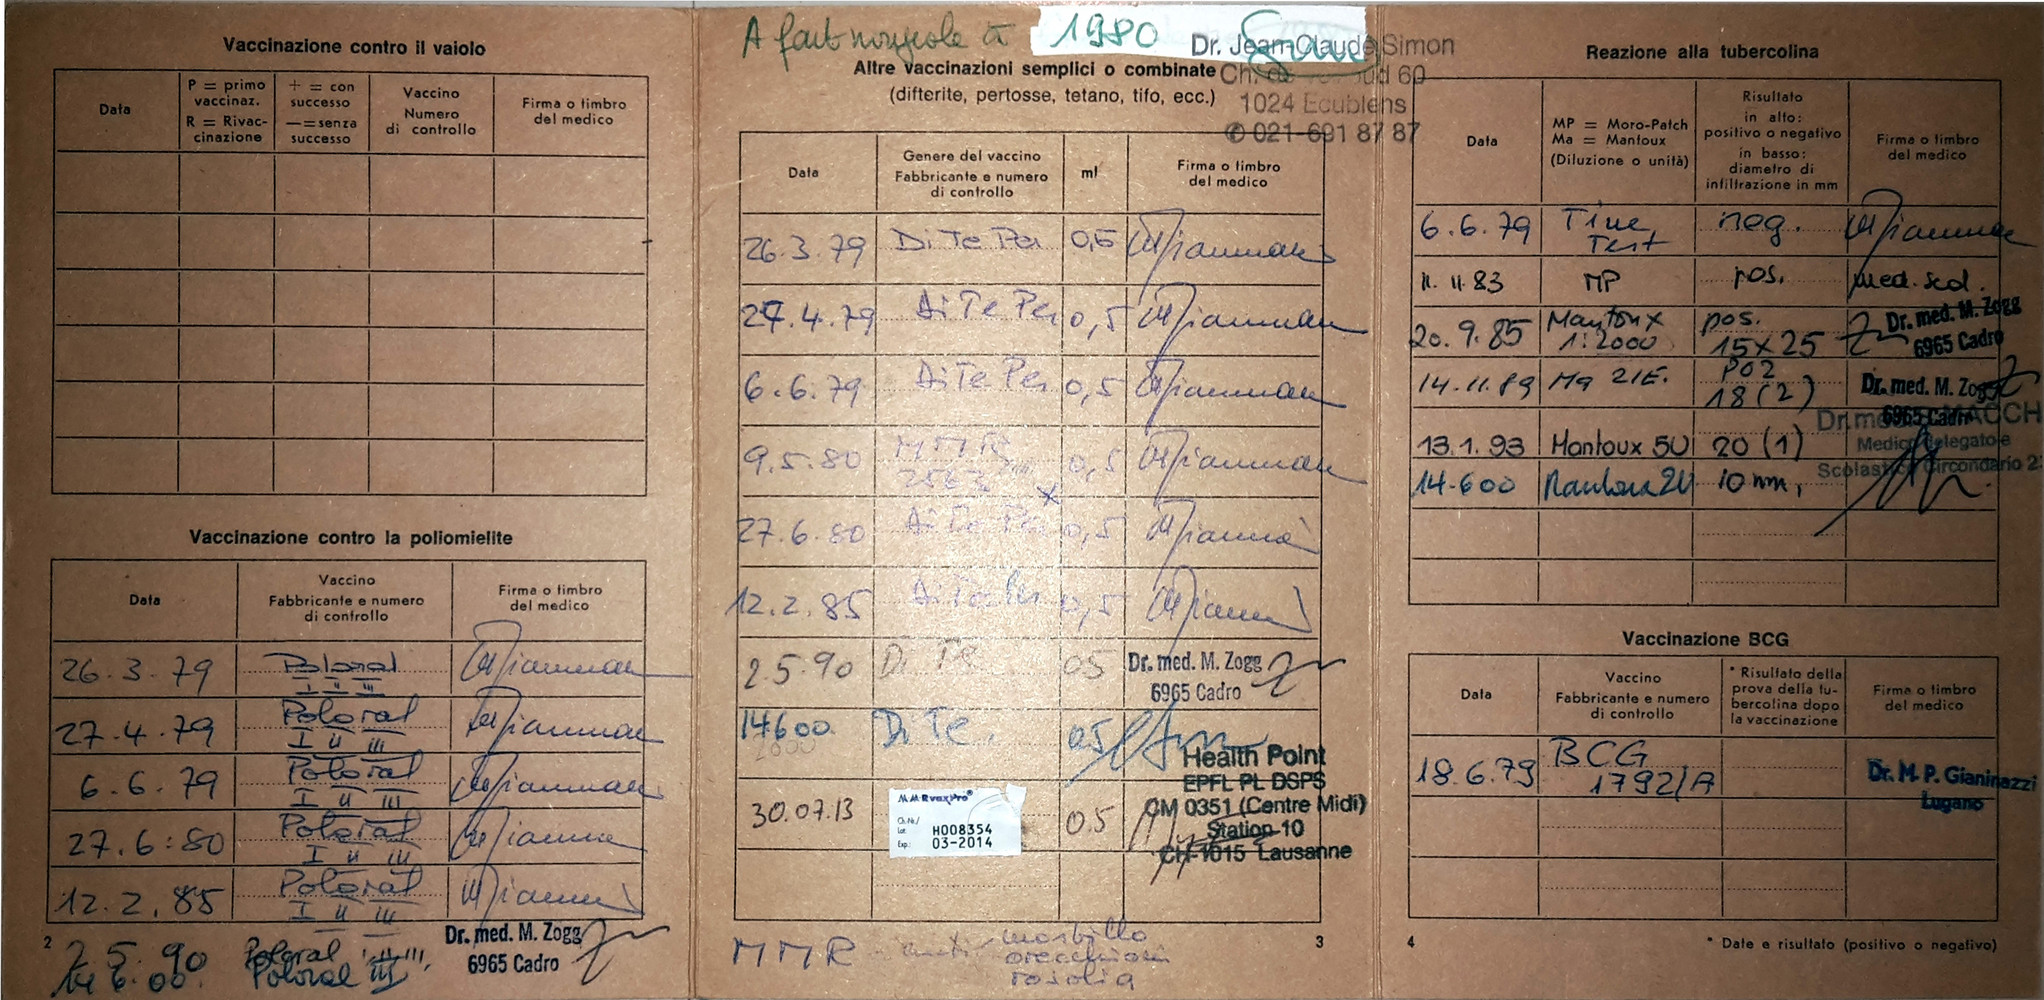 Vaccinazione contro il vaiolo
Data
P = primo
vaccinaz.
R = Rivac-
cinazione
+ = con
successo
—=senza
successo
Vaccino
Numero
di controllo
Firma o timbro
del medico
Vaccinazione contro la poliomielite
Data
Vaccino
Fabbricante e numero
di controllo
Firma o timbro
del medico
26.3.79 Poloral
I II III
27.4.79 Poloral
I II III
6.6.79 Poloral
I II III
27.6.80 Poloral
I II III
12.2.85 Poloral
I II III
2.5.90 Poloral I, II, III,
Dr. med. M. Zogg
6965 Cadro
14.6.00. Poloral III
2
A fait rougeole en 1980
Dr. Jean-Claude Simon
Ch. 60
1024 Ecublens
✆ 021-691 87 87
Altre vaccinazioni semplici o combinate
(difterite, pertosse, tetano, tifo, ecc.)
Data
Genere del vaccino
Fabbricante e numero
di controllo
ml
Firma o timbro
del medico
26.3.79 Di Te Per 0,5
27.4.79 Di Te Per 0,5
6.6.79 Di Te Per 0,5
9.5.80 MMR 0,5
27.6.80 Di Te Per 0,5
12.2.85 Di Te Per 0,5
2.5.90 Di Te 05
Dr. med. M. Zogg
6965 Cadro
14600. Di Te. 05
2000
Health Point
EPFL PL DSPS
CM 0351 (Centre Midi)
Station 10
CH-1015 Lausanne
30.07.13
M-M-RvaxPro®
Ch.-Nr./
Lot: H008354
Exp.: 03-2014
0.5
MMR = anti morbillo
orecchioni
rosolia
3
Reazione alla tubercolina
Data
MP = Moro-Patch
Ma = Mantoux
(Diluzione o unità)
Risultato
in alto:
positivo o negativo
in basso:
diametro di
infiltrazione in mm
Firma o timbro
del medico
6.6.79 Tine
Test neg.
11.11.83 MP pos. med. scol.
20.9.85 Mantoux
1:2000
pos.
15x25
Dr. med. M. Zogg
6965 Cadro
14.11.89 Ma 2IE.
18 (2)
Dr. med. M. Zogg
6965 Cadro
13.1.93 Mantoux 5U 20 (1)
Dr. med. MACCH
Medico delegato e
Scolastico Circondario 2
14.600 Mantoux 2U 10 mm,
Vaccinazione BCG
Data
Vaccino
Fabbricante e numero
di controllo
* Risultato della
prova della tu-
bercolina dopo
la vaccinazione
Firma o timbro
del medico
18.6.79 BCG
1792/A
Dr. M. P. Gianinazzi
Lugano
4
* Date e risultato (positivo o negativo)